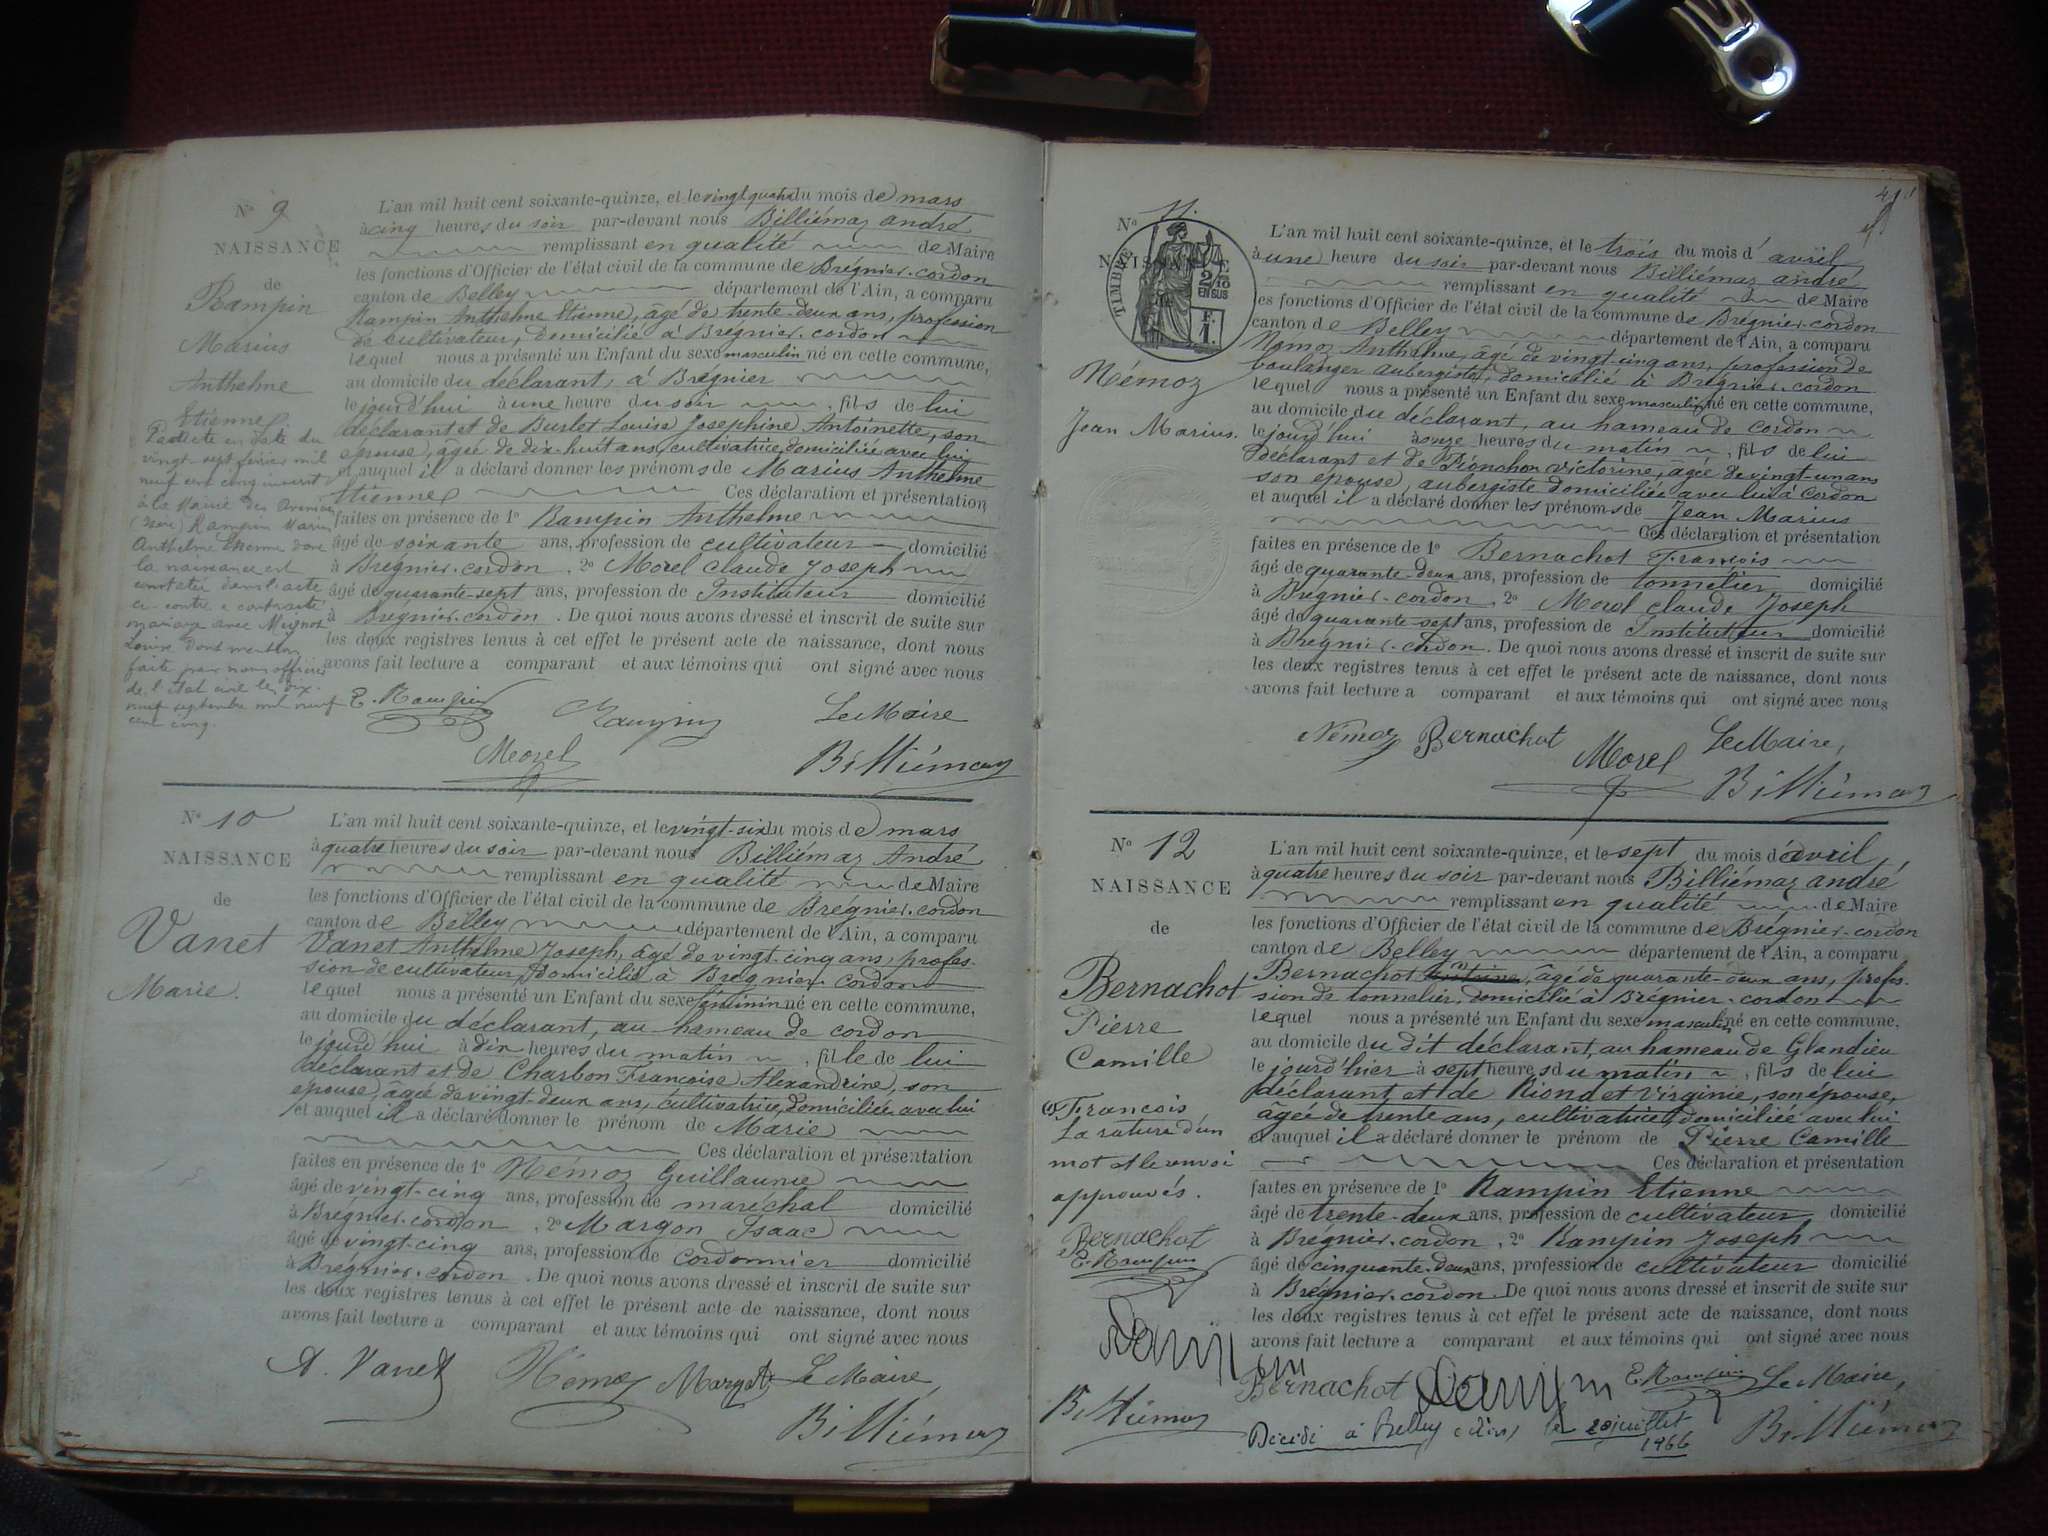 N° 9
NAISSANCE
de
Rampin
Marius
Anthelme
Etienne
Par acte en date du
vingt-sept février mil
neuf cent cinq
à la Mairie des Avenières
(Isère) Rampin Marius
Anthelme Etienne dont
la naissance est
constatée dans l'acte
ci-contre a contracté
mariage avec Mugnoz
Louise dont mention
faite par nous officier
de l'état civil le dix-
neuf septembre mil neuf
cent cinq.
L'an mil huit cent soixante-quinze, et le vingt quatre du mois de mars
à cinq heures du soir par-devant nous Billiémaz andré
remplissant en qualité de Maire
les fonctions d'Officier de l'état civil de la commune de Brégnier-cordon
canton de Belley département de l'Ain, a comparu
Rampin Anthelme Etienne, âgé de trente-deux ans, profession
de cultivateur, domicilié à Brégnier-cordon
lequel nous a présenté un Enfant du sexe masculin né en cette commune,
au domicile du déclarant, à Brégnier
le jourd'hui à une heure du soir, fils de lui
déclarant et de Burlet Louise Josephine Antoinette, son
epouse, âgée de dix-huit ans, cultivatrice, domiciliée avec lui
et auquel il a déclaré donner les prénoms de Marius Anthelme
Etienne Ces déclaration et présentation
faites en présence de 1° Rampin Anthelme
âgé de soixante ans, profession de cultivateur domicilié
à Brégnier-cordon. 2° Morel claude Joseph
âgé de quarante-sept ans, profession de Instituteur domicilié
à Brégnier-cordon. De quoi nous avons dressé et inscrit de suite sur
les deux registres tenus à cet effet le présent acte de naissance, dont nous
avons fait lecture a comparant et aux témoins qui ont signé avec nous
E. Rampin Rampin Le Maire
Morel Billiémaz
N° 10
NAISSANCE
de
Vanet
Marie.
L'an mil huit cent soixante-quinze, et le vingt-six du mois de mars
à quatre heures du soir par-devant nous Billiémaz André
remplissant en qualité de Maire
les fonctions d'Officier de l'état civil de la commune de Brégnier-cordon
canton de Belley département de l'Ain, a comparu
Vanet Anthelme Joseph, âgé de vingt-cinq ans, profes-
sion de cultivateur, domicilié à Brégnier-cordon
lequel nous a présenté un Enfant du sexe féminin né en cette commune,
au domicile du déclarant, au hameau de cordon
le jourd'hui à dix heures du matin, fille de lui
déclarant et de Charbon Françoise Alexandrine, son
epouse, âgée de vingt-deux ans, cultivatrice, domiciliée avec lui
et auquel il a déclaré donner le prénom de Marie
Ces déclaration et présentation
faites en présence de 1° Némoz Guillaume
âgé de vingt-cinq ans, profession de maréchal domicilié
à Brégnier-cordon. 2° Margon Isaac
âgé de vingt-cinq ans, profession de cordonnier domicilié
à Brégnier-cordon. De quoi nous avons dressé et inscrit de suite sur
les deux registres tenus à cet effet le présent acte de naissance, dont nous
avons fait lecture a comparant et aux témoins qui ont signé avec nous
A. Vanet Némoz Le Maire,
Billiémaz
N° 11.
NAISSANCE
TIMBRE
2/10
EN SUS
F.
1.
Némoz
Jean Marius.
L'an mil huit cent soixante-quinze, et le trois du mois d'avril
à une heure du soir par-devant nous Billiémaz andré
remplissant en qualité de Maire
les fonctions d'Officier de l'état civil de la commune de Brégnier-cordon
canton de Belley département de l'Ain, a comparu
Némoz Anthelme, âgé de vingt-cinq ans, profession de
boulanger aubergiste, domicilié à Brégnier-cordon
lequel nous a présenté un Enfant du sexe masculin né en cette commune,
au domicile du déclarant, au hameau de cordon
le jourd'hui à onze heures du matin, fils de lui
déclarant et de Pionchon Victorine, agée de vingt-un ans
son epouse, aubergiste domiciliée avec lui à Cordon
et auquel il a déclaré donner les prénoms de Jean Marius
Ces déclaration et présentation
faites en présence de 1° Bernachot François
âgé de quarante-deux ans, profession de tonnelier domicilié
à Brégnier-cordon. 2° Morel claude Joseph
âgé de quarante-sept ans, profession de Instituteur domicilié
à Brégnier-cordon. De quoi nous avons dressé et inscrit de suite sur
les deux registres tenus à cet effet le présent acte de naissance, dont nous
avons fait lecture a comparant et aux témoins qui ont signé avec nous
Némoz Bernachot Morel Le Maire,
Billiémaz
N° 12
NAISSANCE
de
Bernachot
Pierre
Camille
(1) François
La rature d'un
mot et le renvoi
approuvés.
Bernachot
E. Rampin
Rampin
Billiémaz
L'an mil huit cent soixante-quinze, et le sept du mois d'avril
à quatre heures du soir par-devant nous Billiémaz andré
remplissant en qualité de Maire
les fonctions d'Officier de l'état civil de la commune de Brégnier-cordon
canton de Belley département de l'Ain, a comparu
Bernachot (1), âgé de quarante-deux ans, profes-
sion de tonnelier, domicilié à Brégnier-cordon
lequel nous a présenté un Enfant du sexe masculin né en cette commune,
au domicile du dit déclarant, au hameau de Glandieu
le jourd'hier à sept heures du matin, fils de lui
déclarant et de Riondet Virginie, son épouse,
agée de trente ans, cultivatrice, domiciliée avec lui
et auquel il a déclaré donner le prénom de Pierre Camille
Ces déclaration et présentation
faites en présence de 1° Rampin Etienne
âgé de trente-deux ans, profession de cultivateur domicilié
à Brégnier-cordon. 2° Rampin Joseph
âgé de cinquante-deux ans, profession de cultivateur domicilié
à Brégnier-cordon. De quoi nous avons dressé et inscrit de suite sur
les deux registres tenus à cet effet le présent acte de naissance, dont nous
avons fait lecture a comparant et aux témoins qui ont signé avec nous
Bernachot Rampin E. Rampin Le Maire,
Billiémaz
Décédé à Belley (Ain) le 20 juillet
1966